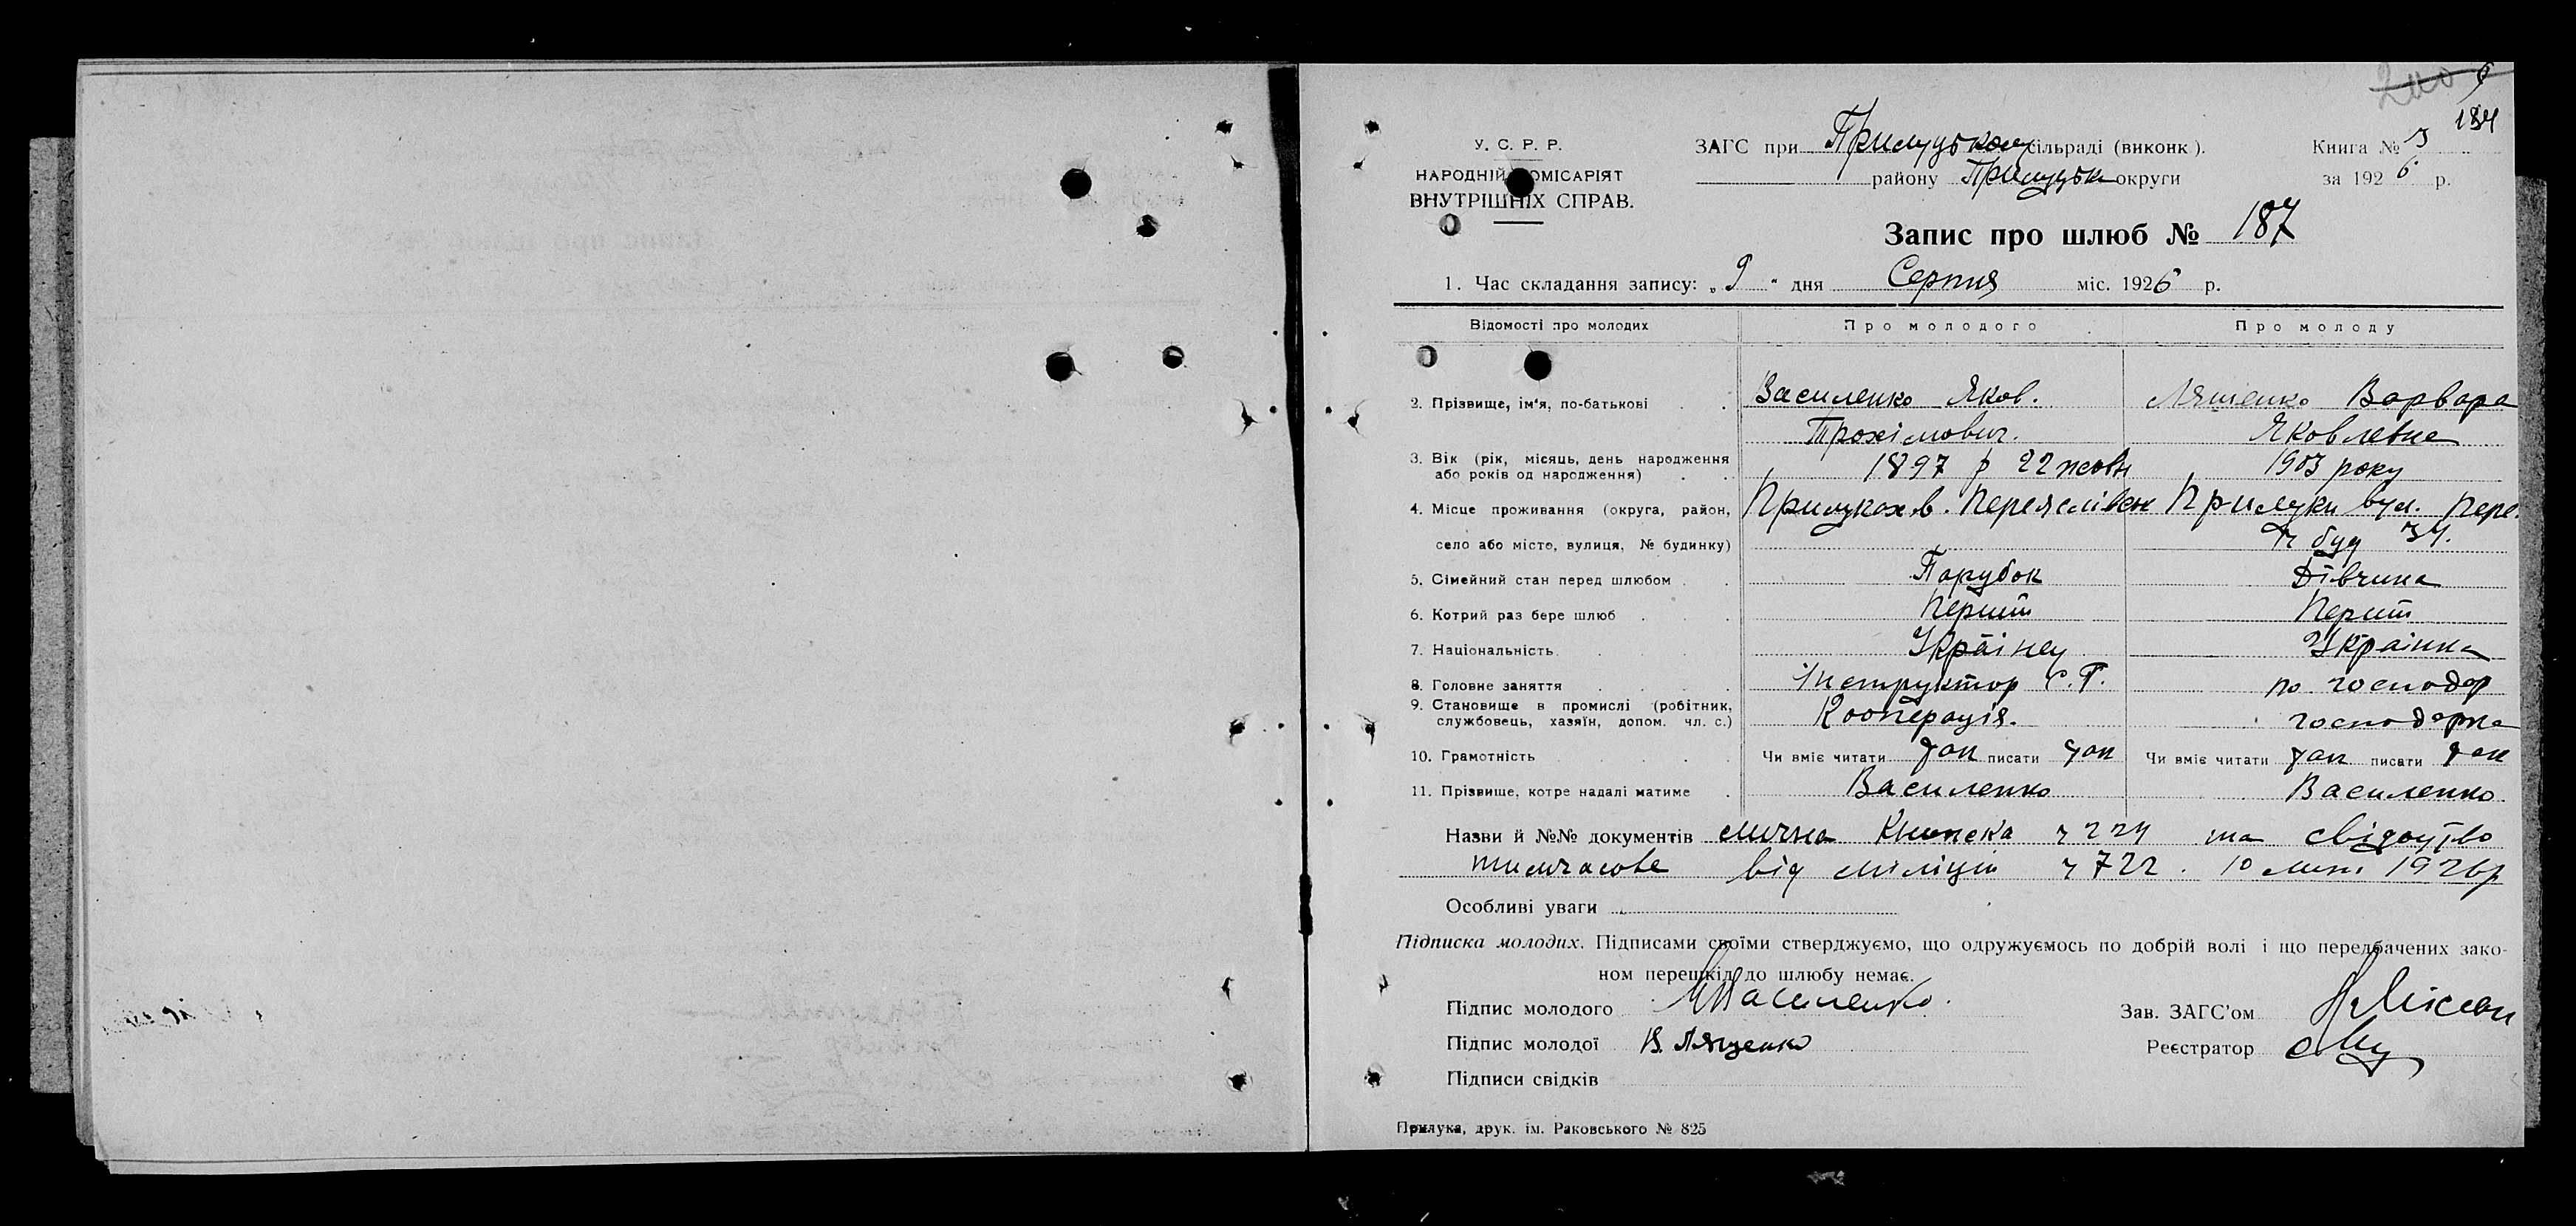 200
184
У. С. Р. Р.
НАРОДНІЙ КОМІСАРІЯТ
ВНУТРІШНІХ СПРАВ.
ЗАГС при Прилуцькому сільраді (виконк).
району Прилуцьк округи
Книга № 3
за 1926 р.
Запис про шлюб № 187
1. Час складання запису: „ 9 “ дня Серпня міс. 1926 р.
Відомості про молодих Про молодого Про молоду
2. Прізвище, ім'я, по-батькові Василенко Яков. Лященко Варвара
Трохімович. Яковлевна
3. Вік (рік, місяць, день народження або років од народження) 1897 р 22 жовт 1903 року
4. Місце проживання (округа, район, Прилуках в. Переяслівск Прилуки вул. Пере.
село або місто, вулиця, № будинку) буд 34.
5. Сімейний стан перед шлюбом Парубок Дівчина
6. Котрий раз бере шлюб Перший Перший
7. Національність Українец Українка
8. Головне заняття Інструктор С.Г. по господар
9. Становище в промислі (робітник, службовець, хазяїн, допом. чл. с.) Кооперація. господарка
10. Грамотність Чи вміє читати так писати так Чи вміє читати так писати так
11. Прізвище, котре надалі матиме Василенко Василенко
Назви й №№ документів книжка ч 224 та свідоцтво
тимчасове від міліціи ч 722. 10 1926р
Особливі уваги
Підписка молодих. Підписами своїми стверджуємо, що одружуємось по добрій волі і що передбачених зако-
ном перешкід до шлюбу немає.
Підпис молодого Я Василенко. Зав. ЗАГС'ом
Підпис молодої В. Лященко Реєстратор
Підписи свідків
Прилука, друк. ім. Раковського № 825